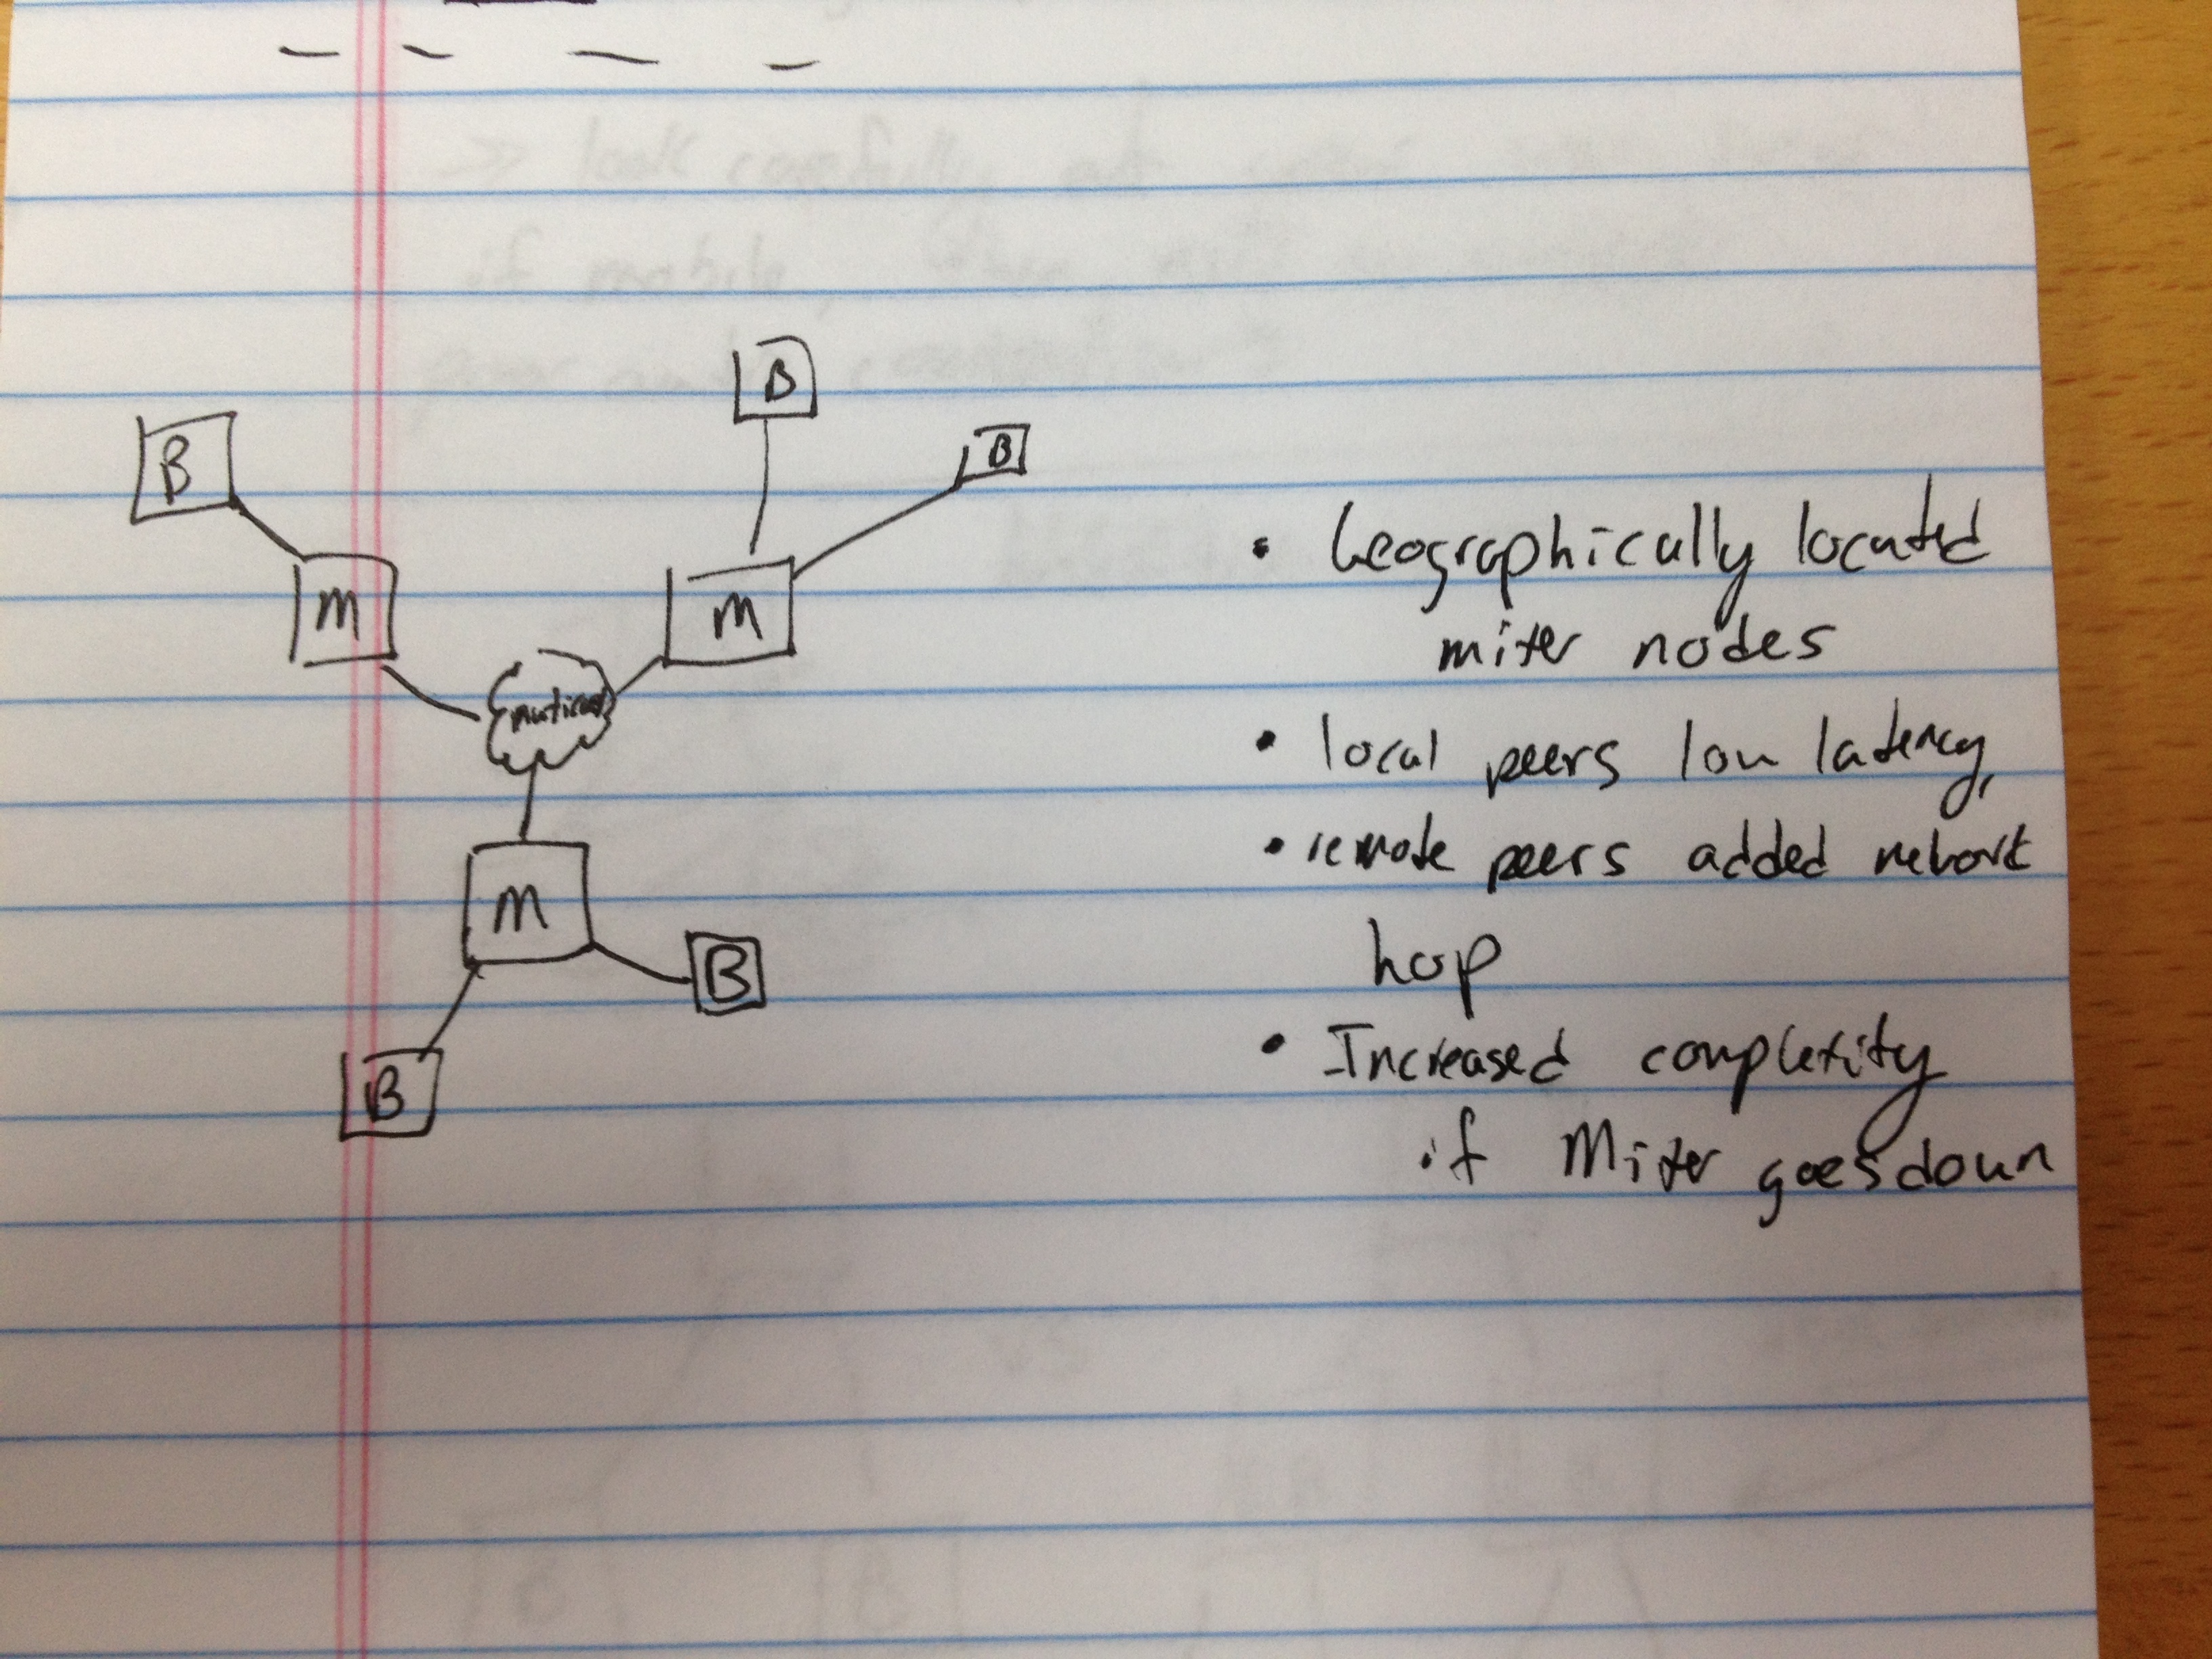 B
B
B
M
M
M
B
B
• Geographically located
mixer nodes
• local peers low latency,
• remote peers added network
hop
• Increased complexity
if Mixer goes down